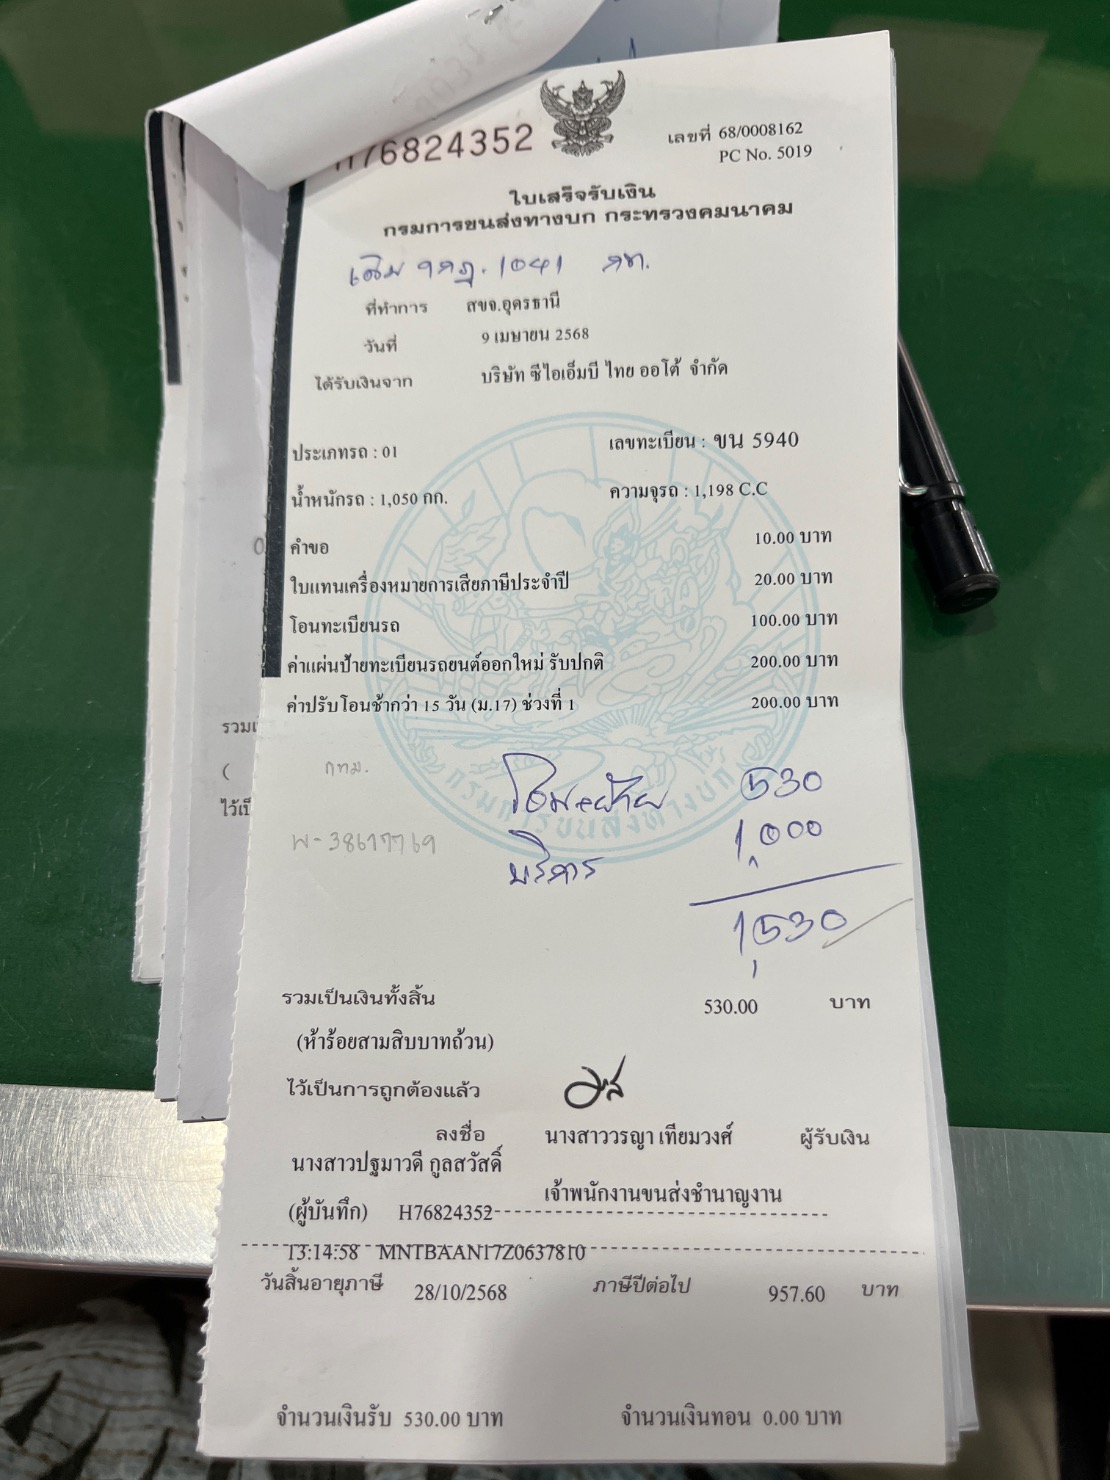 H76824352
เลขที่ 68/0008162
PC No. 5019
ใบเสร็จรับเงิน
กรมการขนส่งทางบก กระทรวงคมนาคม
เดิม 1กฎ. 1041 กท.
ที่ทำการ สขจ.อุดรธานี
วันที่ 9 เมษายน 2568
ได้รับเงินจาก บริษัท ซีไอเอ็มบี ไทย ออโต้ จำกัด
ประเภทรถ : 01 เลขทะเบียน : ขน 5940
น้ำหนักรถ : 1,050 กก. ความจุรถ : 1,198 C.C
คำขอ 10.00 บาท
ใบแทนเครื่องหมายการเสียภาษีประจำปี 20.00 บาท
โอนทะเบียนรถ 100.00 บาท
ค่าแผ่นป้ายทะเบียนรถยนต์ออกใหม่ รับปกติ 200.00 บาท
ค่าปรับโอนช้ากว่า 15 วัน (ม.17) ช่วงที่ 1 200.00 บาท
รวมเ
(
ไว้เป็
กทม.
530
W-38617769
บริการ 1,000
1,530
กรมการขนส่งทางบก
รวมเป็นเงินทั้งสิ้น 530.00 บาท
(ห้าร้อยสามสิบบาทถ้วน)
ไว้เป็นการถูกต้องแล้ว
ลงชื่อ นางสาววรญา เทียมวงศ์ ผู้รับเงิน
นางสาวปฐมาวดี กูลสวัสดิ์
เจ้าพนักงานขนส่งชำนาญงาน
(ผู้บันทึก) H76824352
13:14:58 MNTBAAN17Z0637810
วันสิ้นอายุภาษี 28/10/2568 ภาษีปีต่อไป 957.60 บาท
จำนวนเงินรับ 530.00 บาท จำนวนเงินทอน 0.00 บาท